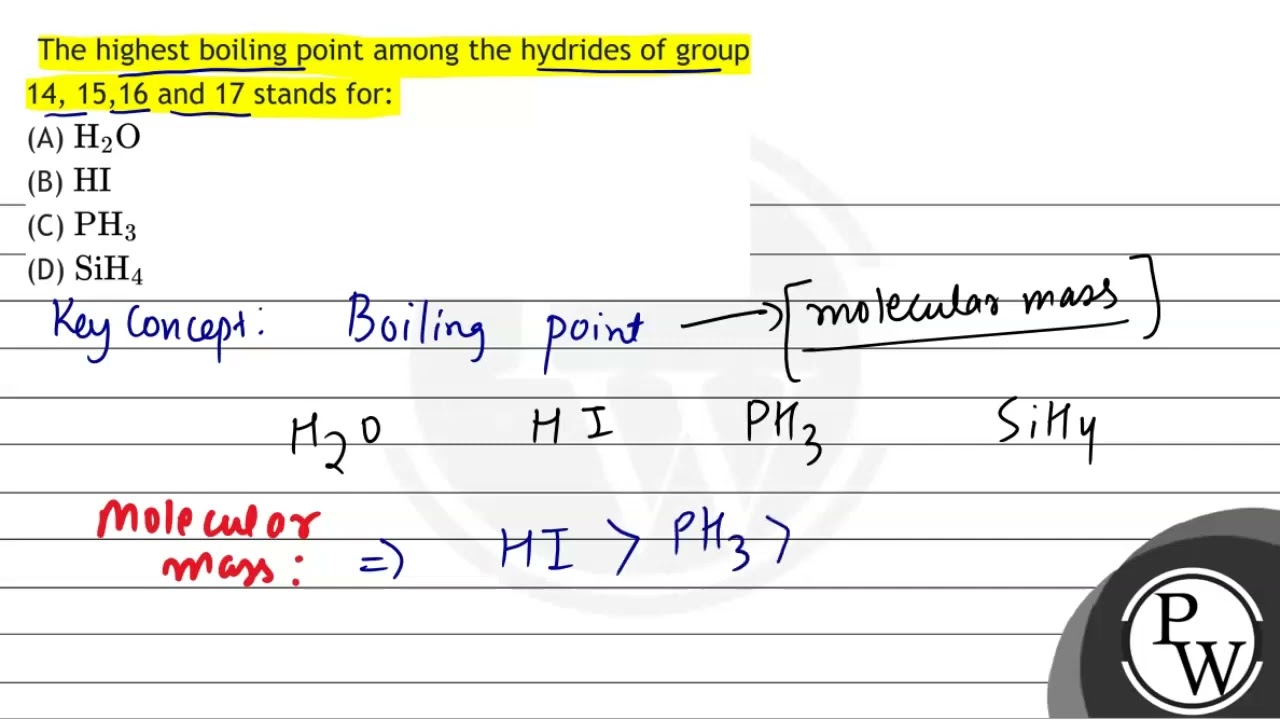 The highest boiling point among the hydrides of group
14, 15,16 and 17 stands for:
(A) H₂O
(B) HI
(C) PH₃
(D) SiH₄
Key Concept: Boiling point → [molecular mass]
H₂O HI PH₃ SiH₄
Molecular
mass: => HI > PH₃ >
PW